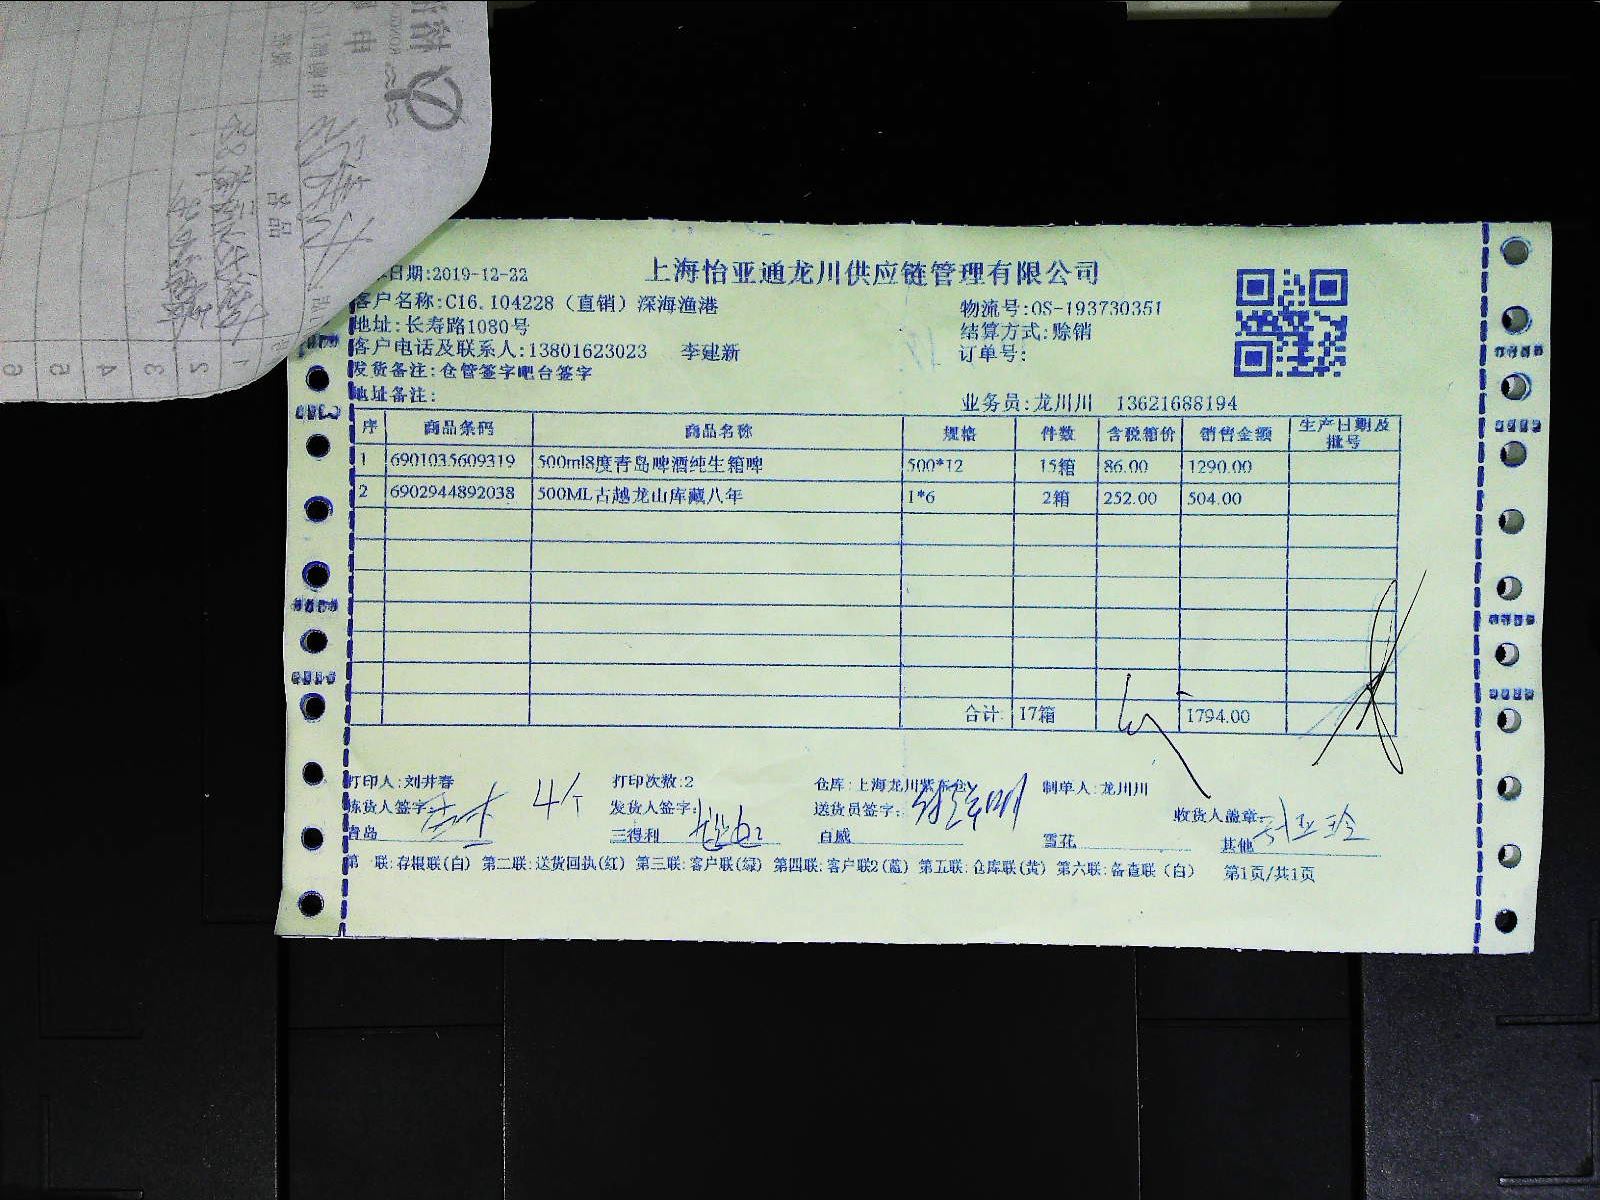 日期:2019-12-22
上海怡亚通龙川供应链管理有限公司
客户名称:C16.104228（直销）深海渔港
物流号:OS-193730351
地址:长寿路1080号
结算方式:赊销
客户电话及联系人:13801623023 李建新
订单号:
发货备注:仓管签字吧台签字
地址备注:
业务员:龙川川 13621688194
序 商品条码 商品名称 规格 件数 含税箱价 销售金额 生产日期及批号
1 6901035609319 500ml8度青岛啤酒纯生箱啤 500*12 15箱 86.00 1290.00
2 6902944892038 500ML古越龙山库藏八年 1*6 2箱 252.00 504.00
合计: 17箱 1794.00
打印人:刘井春 打印次数:2 仓库:上海龙川紫东仓 制单人:龙川川
拣货人签字: 4个 发货人签字: 送货员签字: 收货人盖章:
青岛 三得利 百威 雪花 其他
第一联:存根联(白) 第二联:送货回执(红) 第三联:客户联(绿) 第四联:客户联2(蓝) 第五联:仓库联(黄) 第六联:备查联（白） 第1页/共1页
品名
1
2
3
4
5
6